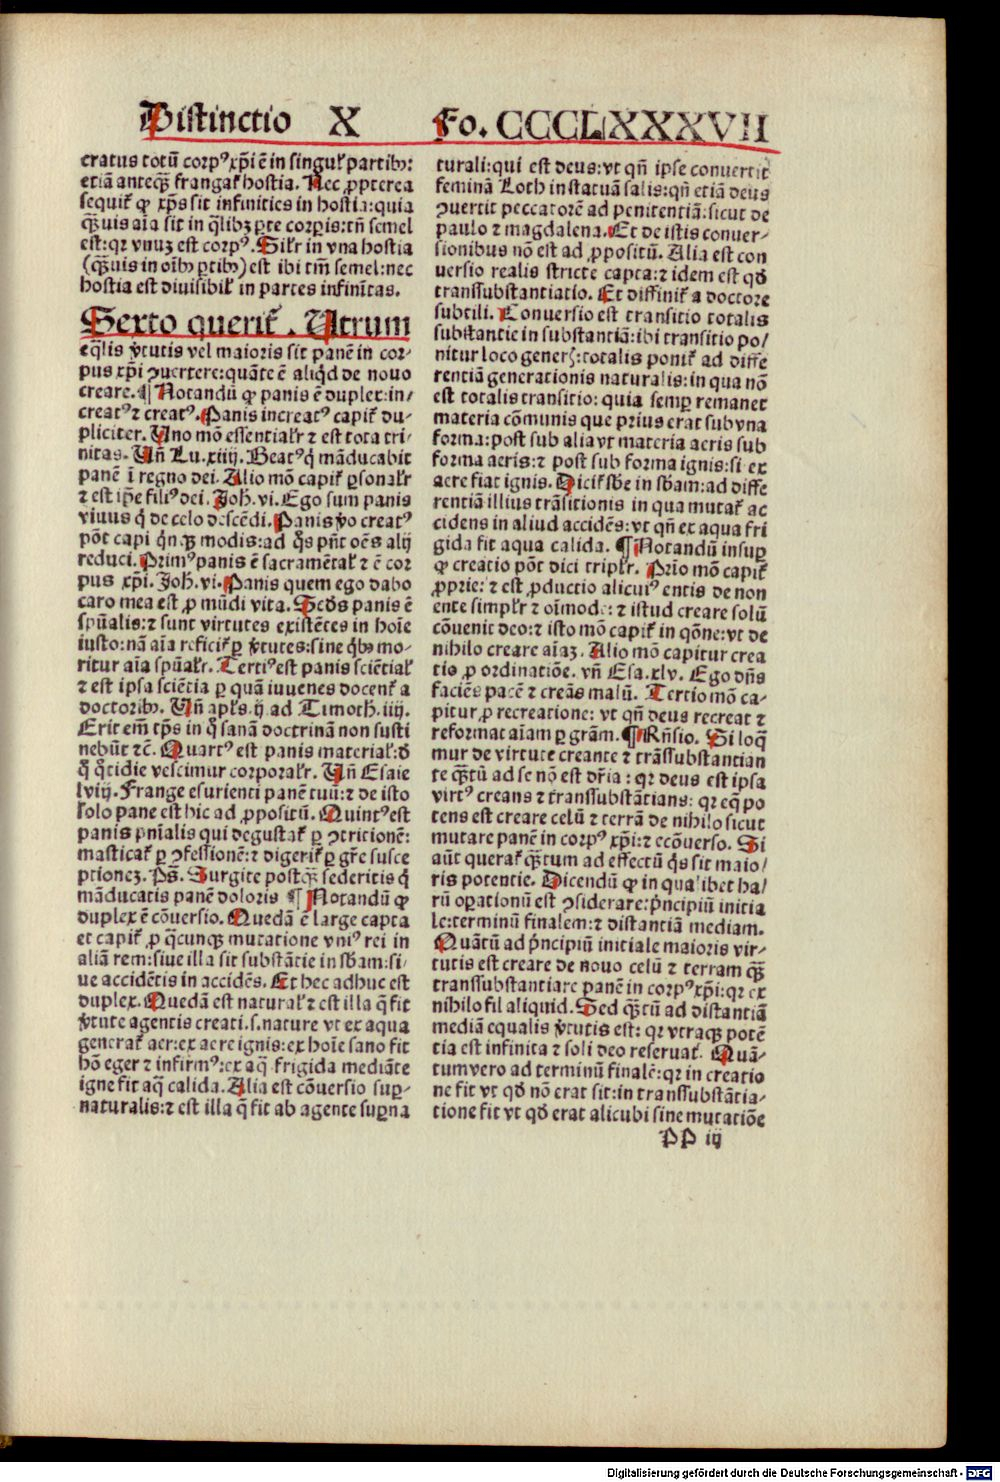 Distinctio X Fo. CCCCLXXXVII
eratus totū corpꝰ xp̄i ē in singul̓ partibꝫ:
etiā anteqꝫ̄ frangat̓ hostia. Nec ꝓpterea
sequit̓ ꝙ xp̄s sit infinities in hostia: quia
qꝫ̄uis aīa sit in q̄libꝫ ꝑte corpis: tn̄ semel
est: qꝛ vnuꝫ est corpꝰ. Sil̓r in vna hostia
(qꝫ̄uis in oībꝫ ꝑtibꝫ) est ibi tm̄ semel: nec
hostia est diuisibil̓ in partes infinitas.
Sexto querit̓. Utrum
eq̄lis v̓tutis vel maioris sit panē in cor⸗
pus xp̄i ꝯuertere: quāte ē aliqd̓ de nouo
creare. ¶ Notandū ꝙ panis ē duplex: in⸗
creatꝰ ⁊ creatꝰ. Panis increatꝰ capit̓ du⸗
pliciter. Uno mō essential̓r ⁊ est tota tri⸗
nitas. Un̄ Lu. xiiij. Beatꝰ q̓ māducabit
panē ī regno dei. Alio mō capit̓ ꝑsonal̓r
⁊ est ip̄e filiꝰ dei. Joh̄. vi. Ego sum panis
viuus q̓ de celo descēdi. Panis v̓o creatꝰ
pōt capi q̓nqꝫ modis: ad q̓s pn̄t oēs alij
reduci. Primꝰ panis ē sacramētal̓ ⁊ ē cor
pus xp̄i. Joh̄. vi. Panis quem ego dabo
caro mea est ꝓ mūdi vita. Scd̓s panis ē
spūalis: ⁊ sunt virtutes existētes in hoīe
iusto: nā aīa reficit̓ ꝑ v̓tutes: sine qbꝫ mo⸗
ritur aīa spūal̓r. Tertiꝰ est panis sciētial̓
⁊ est ipsa sciētia ꝑ quā iuuenes docent̓ a
doctoribꝫ. Un̄ apl̓s .ij. ad Timoth̄. iiij.
Erit em̄ tp̄s in q̓ sanā doctrinā non susti
nebūt ⁊c̄. Quartꝰ est panis material̓: d̓
q̓ q̓tidie vescimur corporal̓r. Un̄ Esaie
lviij. Frange esurienti panē tuū: ⁊ de isto
solo pane est hic ad ꝓpositū. Quintꝰ est
panis pn̄ialis qui degustat̓ ꝑ ꝯtritionē:
masticat̓ ꝑ ꝯfessionē: ⁊ digerit̓ ꝑ gr̄e susce
ptionez. Ps̄. Surgite postqꝫ̄ sederitis q̓
māducatis panē doloris ¶ Notandū ꝙ
duplex ē cōuersio. Quedā ē large capta
et capit̓ ꝓ q̄cunqꝫ mutatione vniꝰ rei in
aliā rem: siue illa sit substātie in sb̄am: si⸗
ue accidētis in accidēs. Et hec adhuc est
duplex. Quedā est natural̓ ⁊ est illa q̄ fit
v̓tute agentis creati. s. nature vt ex aqua
generat̓ aer: ex aere ignis: ex hoīe sano fit
hō eger ⁊ infirmꝰ: ex aq̄ frigida mediāte
igne fit aq̄ calida. Alia est cōuersio suꝑ⸗
naturalis: ⁊ est illa q̄ fit ab agente suꝑna
turali: qui est deus: vt qn̄ ipse conuertit
feminā Loth in statuā salis: qn̄ etiā deus
ꝯuertit peccatorē ad penitentiā: sicut de
paulo ⁊ magdalena. Et de istis conuer⸗
sionibus nō est ad ꝓpositū. Alia est con
uersio realis stricte capta: ⁊ idem est qd̓
transsubstantiatio. Et diffinit̓ a doctore
subtili. Conuersio est transitio totalis
substantie in substantiā: ibi transitio po⸗
nitur loco gener̄: totalis ponit̓ ad diffe
rentiā generationis naturalis: in qua nō
est totalis transitio: quia semꝑ remanet
materia cōmunis que prius erat sub vna
forma: post sub alia vt materia aeris sub
forma aeris: ⁊ post sub forma ignis: si ex
aere fiat ignis. Dicit̓ sb̄e in sb̄am: ad diffe
rentiā illius trāsitionis in qua mutat̓ ac
cidens in aliud accidēs: vt qn̄ ex aqua fri
gida fit aqua calida. ¶ Notandū insuꝑ
ꝙ creatio pōt dici tripl̓r. Prīo mō capit̓
ꝓprie: ⁊ est ꝓductio alicuiꝰ entis de non
ente simpl̓r ⁊ oīmode: ⁊ istud creare solū
cōuenit deo: ⁊ isto mō capit̓ in qōne: vt de
nihilo creare aīaꝫ. Alio mō capitur crea
tis ꝓ ordinatiōe. vn̄ Esa. xlv. Ego dn̄s
faciēs pacē ⁊ creās malū. Tertio mō ca⸗
pitur ꝓ recreatione: vt qn̄ deus recreat ⁊
reformat aīam ꝑ grām. ¶ Rn̄sio. Si loq̄
mur de virtute creante ⁊ trāssubstantian
te qꝫ̄tū ad se nō est dr̄ia: qꝛ deus est ipsa
virtꝰ creans ⁊ transsubstātians: qꝛ eq̄ po
tens est creare celū ⁊ terrā de nihilo sicut
mutare panē in corpꝰ xp̄i: ⁊ ecōuerso. Si
aūt querat̓ qꝫ̄tum ad effectū q̓s sit maio⸗
ris potentie. Dicendū ꝙ in qualibet ha⸗
rū oꝑationū est ꝯsiderare: p̓ncipiū initia
le: terminū finalem: ⁊ distantiā mediam.
Quātū ad p̓ncipiū initiale maioris vir⸗
tutis est creare de nouo celū ⁊ terram qꝫ̄
transsubstantiare panē in corpꝰ xp̄i: qꝛ ex
nihilo fil aliquid. Sed qꝫ̄tū ad distantiā
mediā equalis v̓tutis est: qꝛ vtraqꝫ potē
tia est infinita ⁊ soli deo reseruat̓. Quā⸗
tum vero ad terminū finalē: qꝛ in creatio
ne fit vt qd̓ nōn erat sit: in transsubstātia⸗
tione fit vt qd̓ erat alicubi sine mutatiōe
PP iij
Digitalisierung gefördert durch die Deutsche Forschungsgemeinschaft - DFG